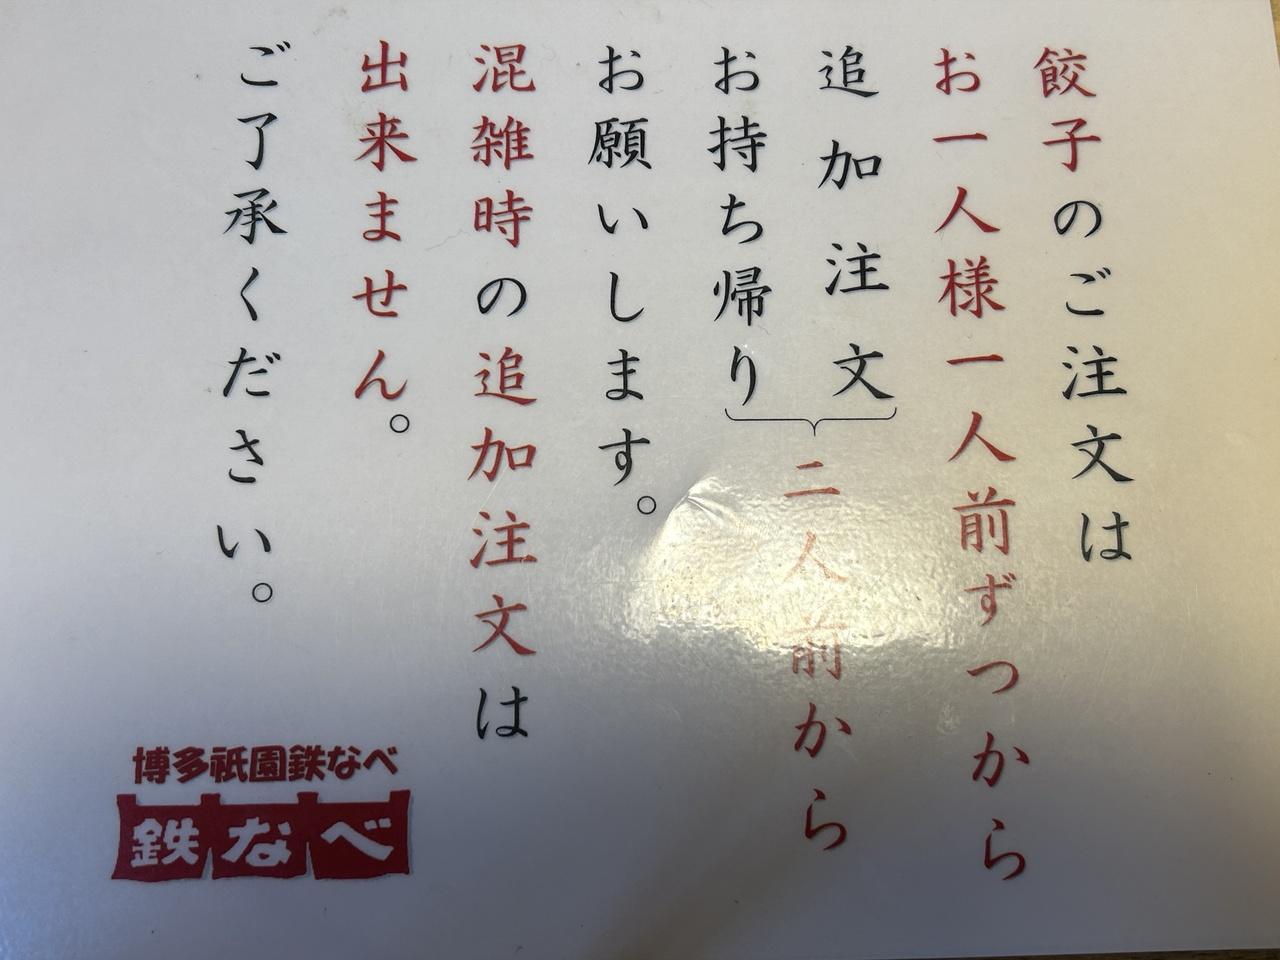 餃子のご注文は
お一人様一人前ずつから
追加注文
お持ち帰り
二人前から
お願いします。
混雑時の追加注文は
出来ません。
ご了承ください。
博多祇園鉄なべ
鉄なべ